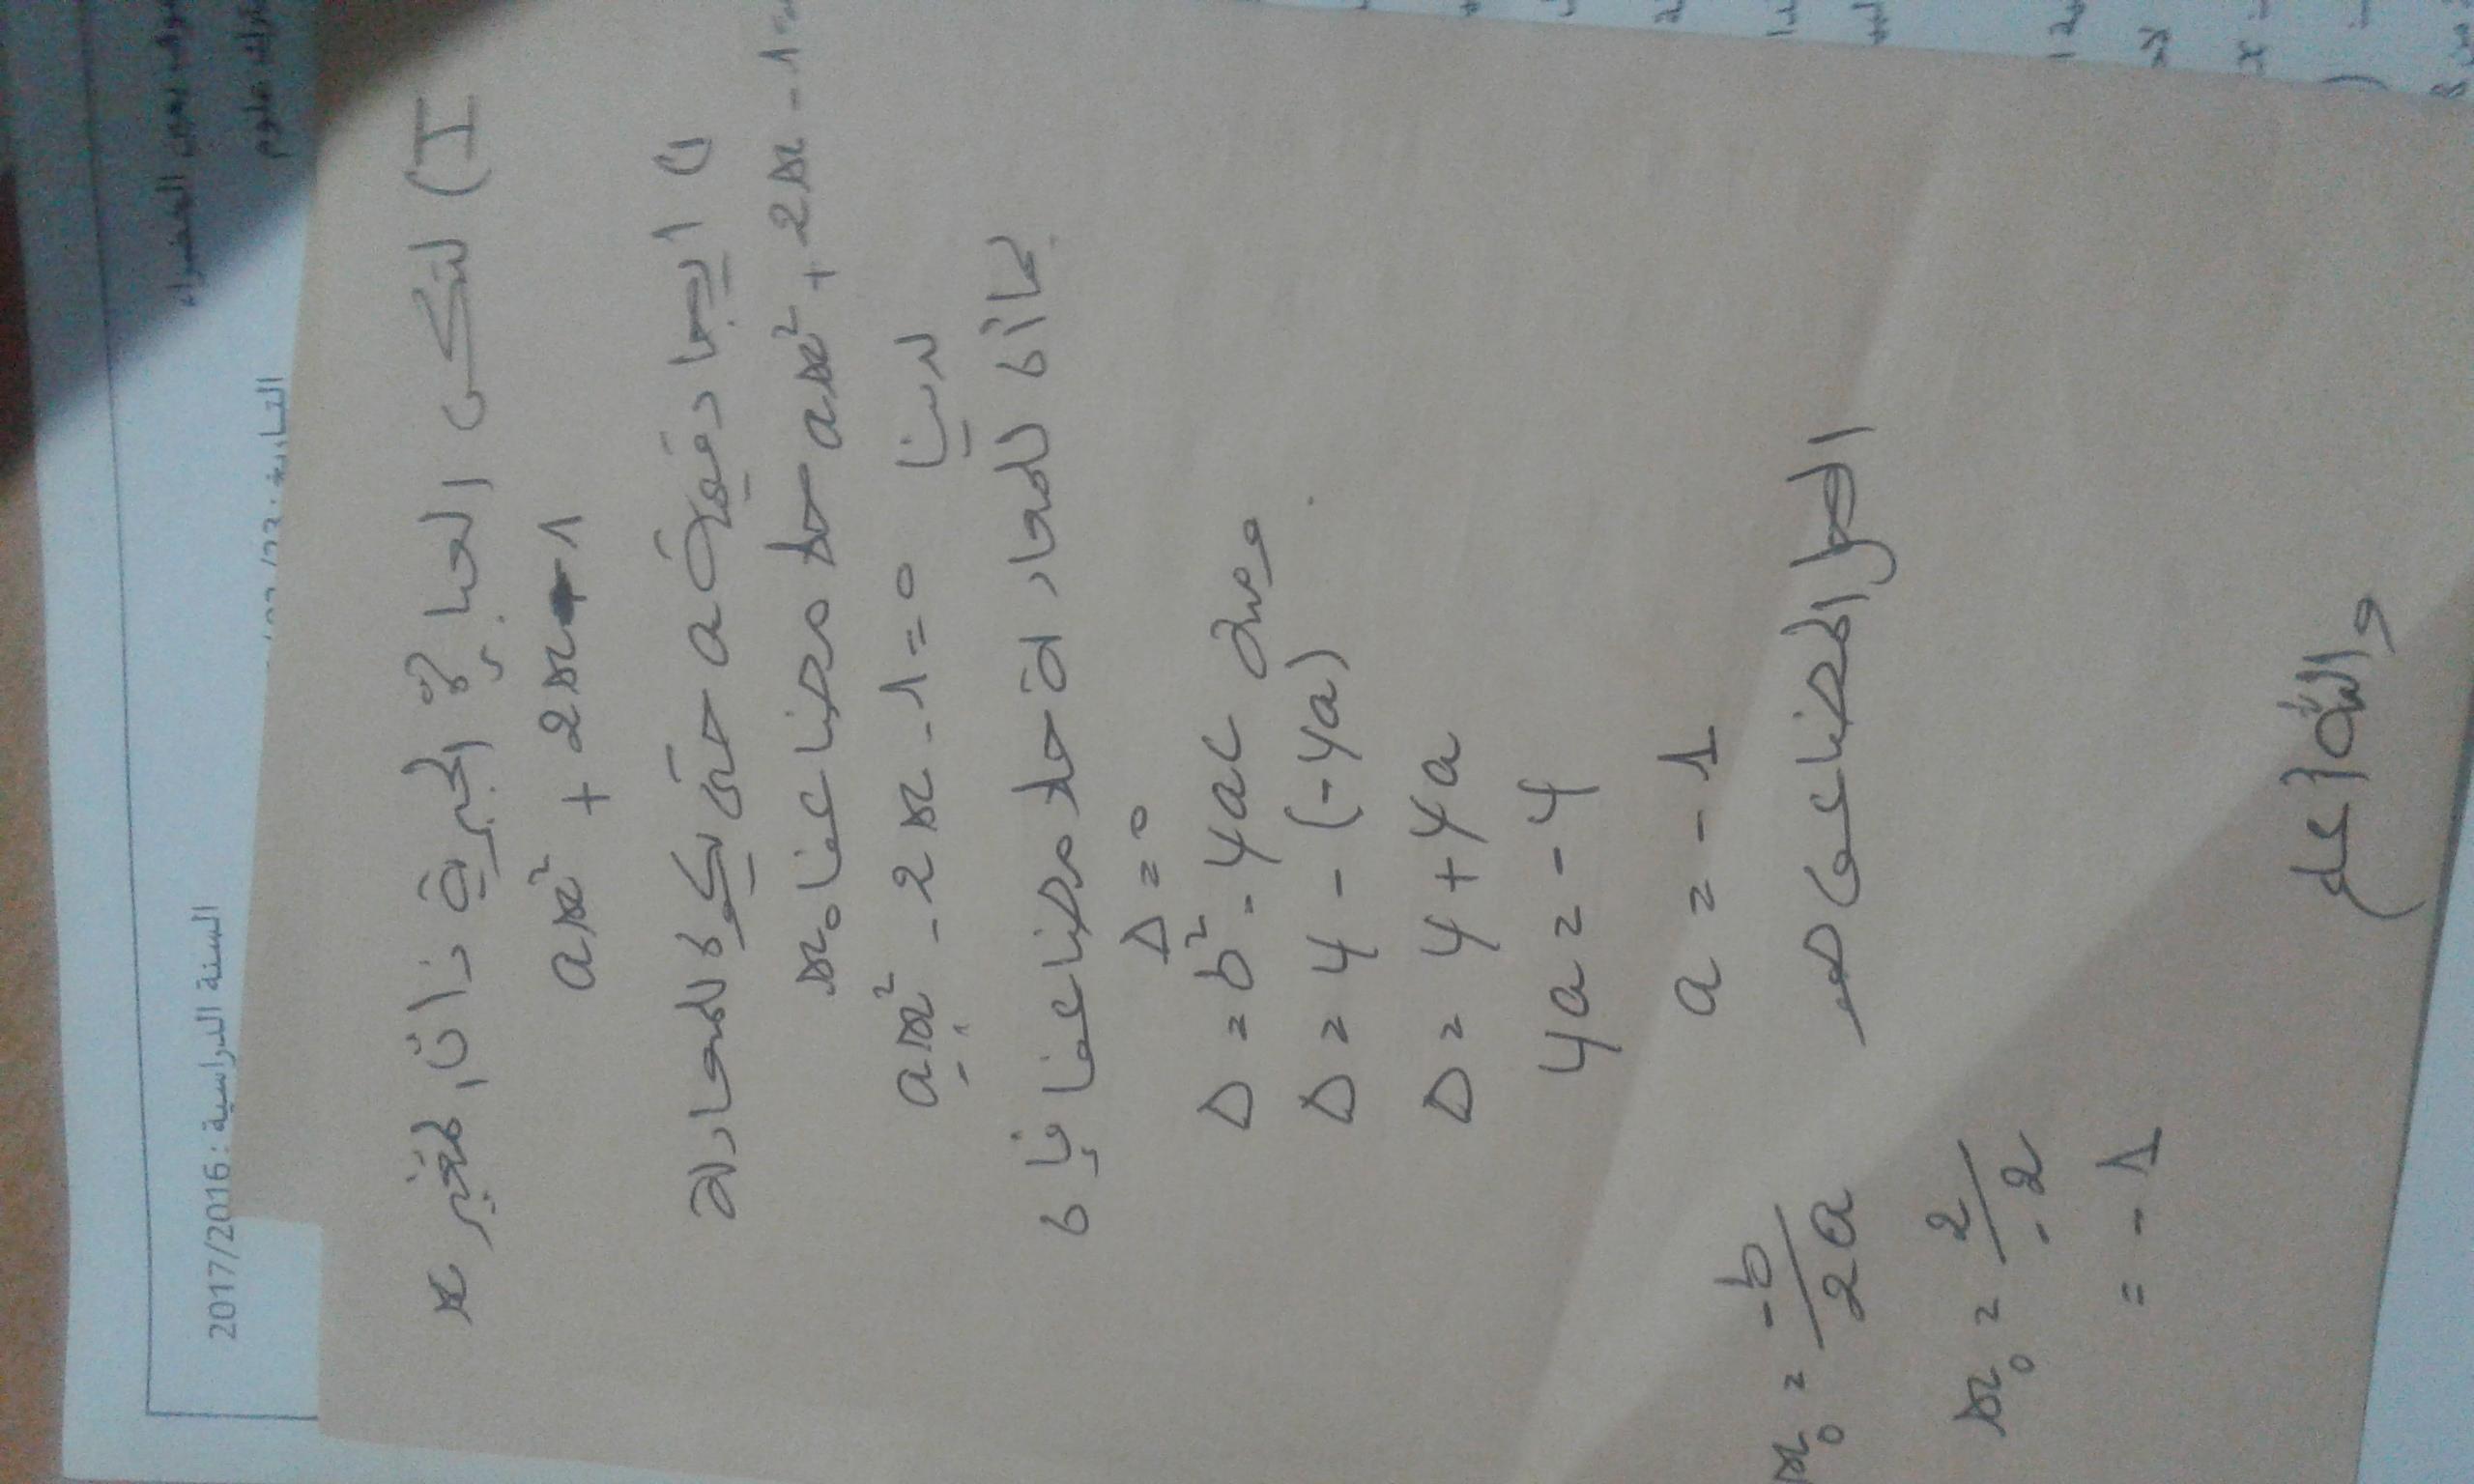 السنة الدراسية : 2017/2016
التاريخ :
علوم
I) لتكن العبارة الجبرية ذات المتغير x
ax² + 2x - 1
ايجاد قيمة a حتى يكون للمعادلة
ax² + 2x - 1 = حلا مضاعفا x₀
لدينا ax² - 2x - 1 = 0
بما أن للمعادلة حلا مضاعفا فإن
Δ = 0
Δ = b² - 4ac ومنه
Δ = 4 - (-4a)
Δ = 4 + 4a
4a = -4
a = -1
الحل المضاعف هو
x₀ = -b/2a
x₀ = 2/-2
= -1
والله أعلم